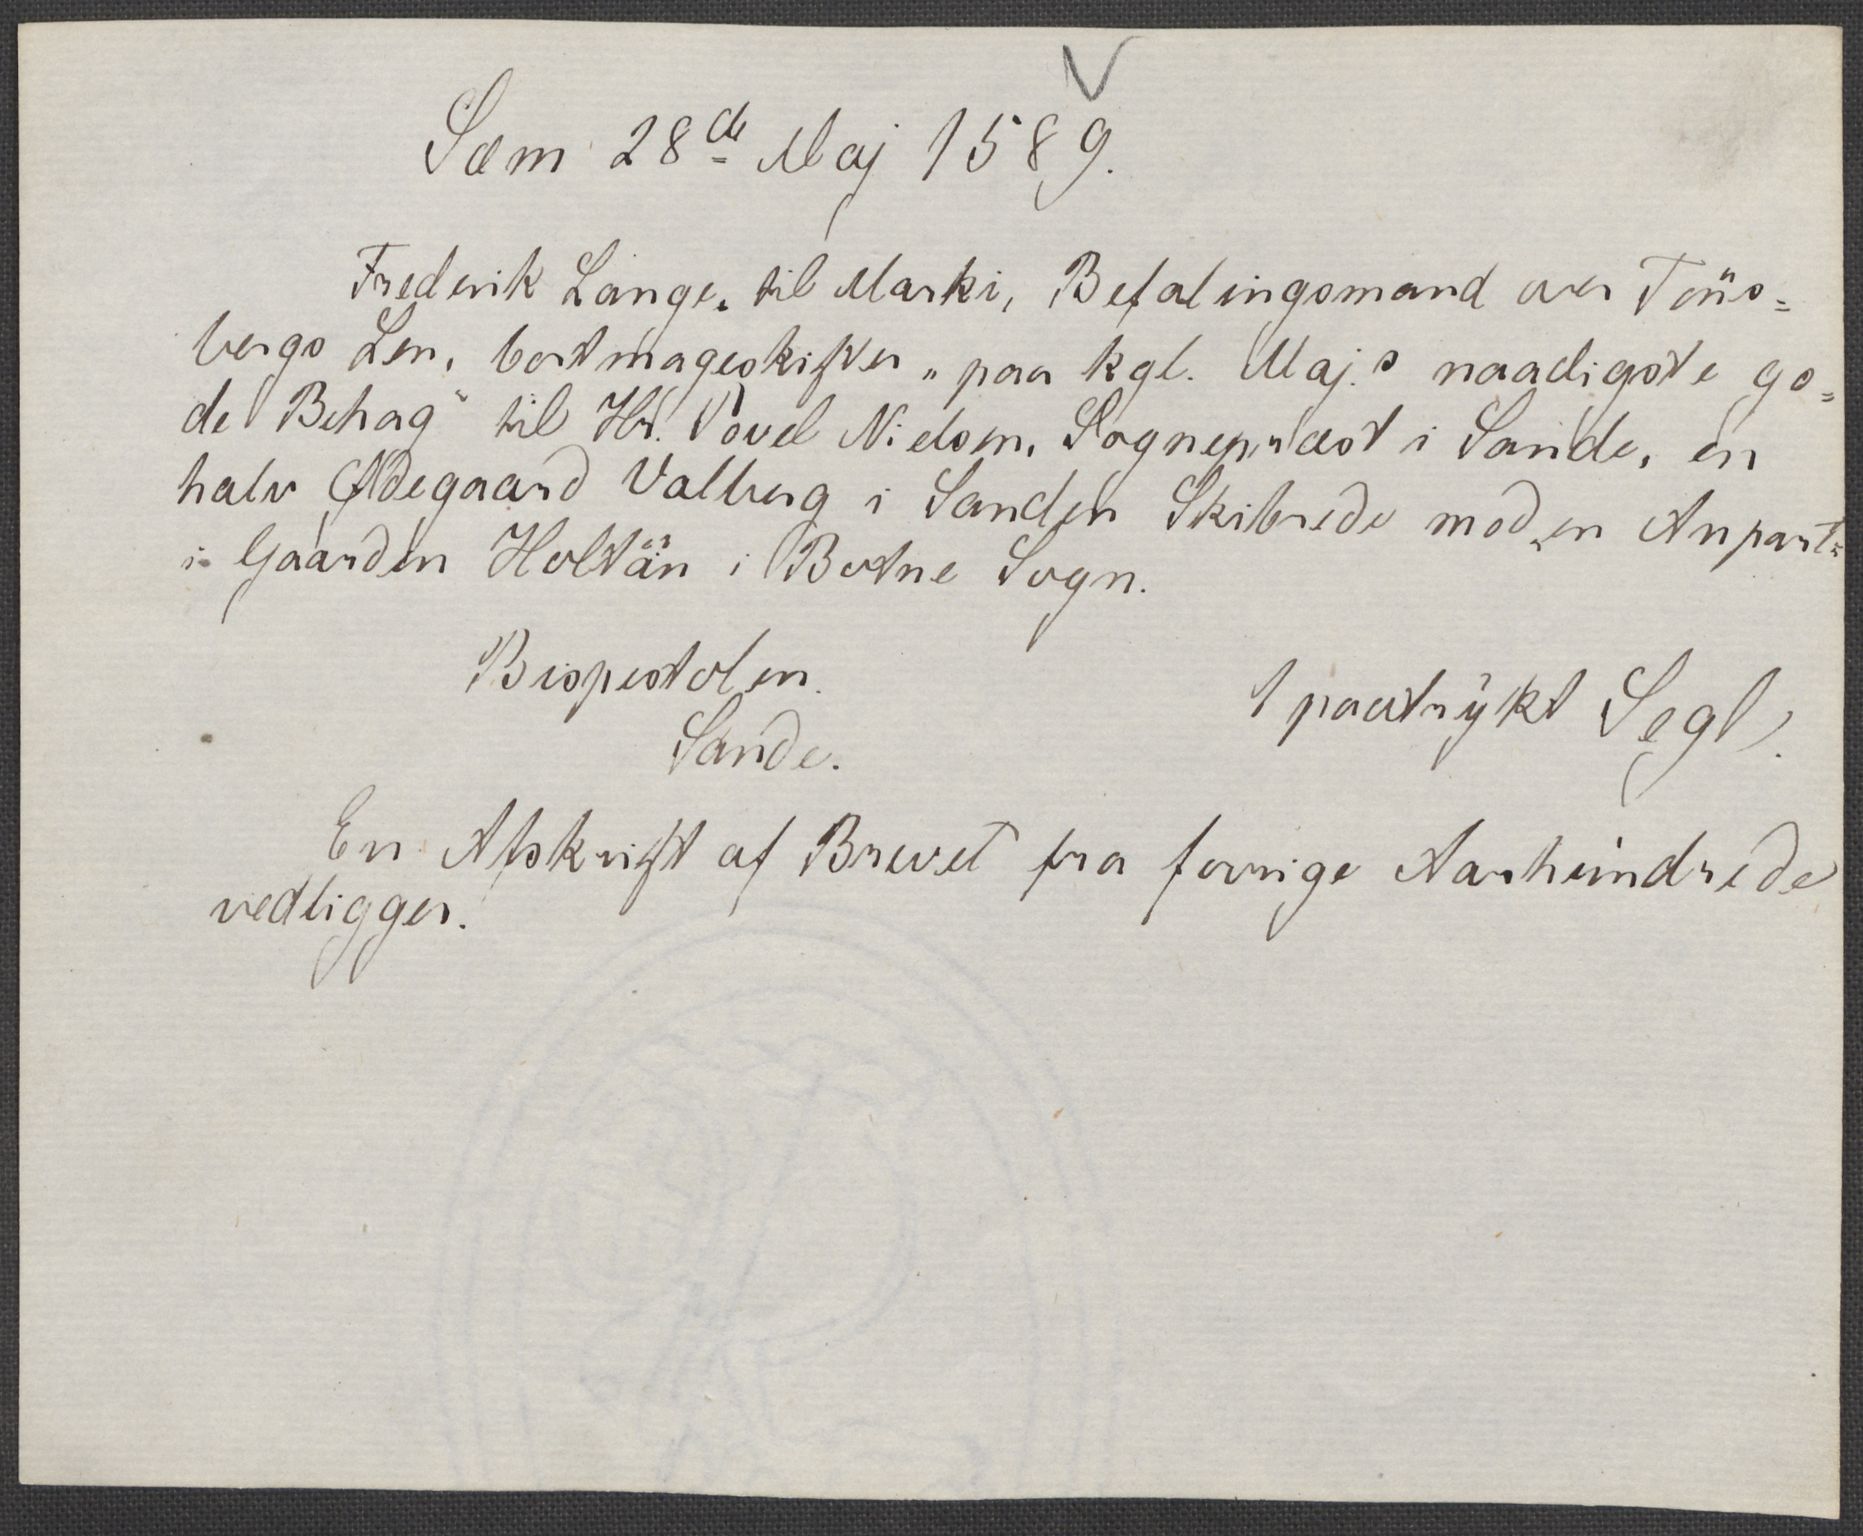 Sæm 28de Maj 1589.
Frederik Lange, til Marki, Befalingsmand over Töns=
bergs Len, bortmageskifter „paa kgl. Maj.s naadigste go=
de Behag“ til Hr. Povel Nielsen, Sognepræst i Sande, en
halv Ødegaard Valberg i Sanden Skibrede mod en Anpart
i Gaarden Holtän i Botne Sogn.
Bispestolen.
Sande.
1 paatrykt Segl.
En Afskrift af Brevet fra forrige Aarhundrede
vedligger.